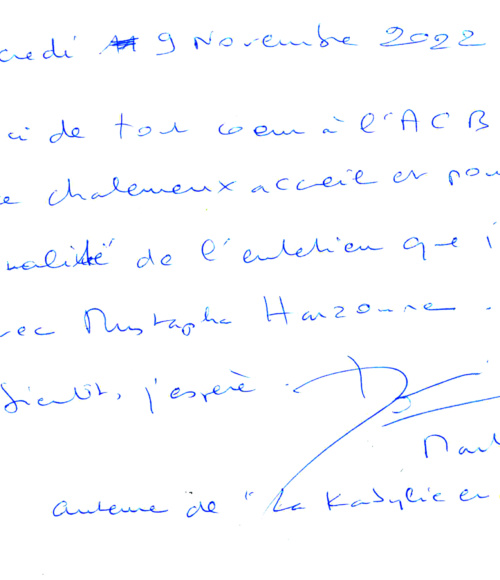 credi 9 Novembre 2022
ci de tout coeur à l'ACB
e chaleureux accueil et pou
ualité de l'entretien que j
vec Mustapha Harzoune.
Bientôt, j'espère.
Mart
auteure de "La Kabylie en